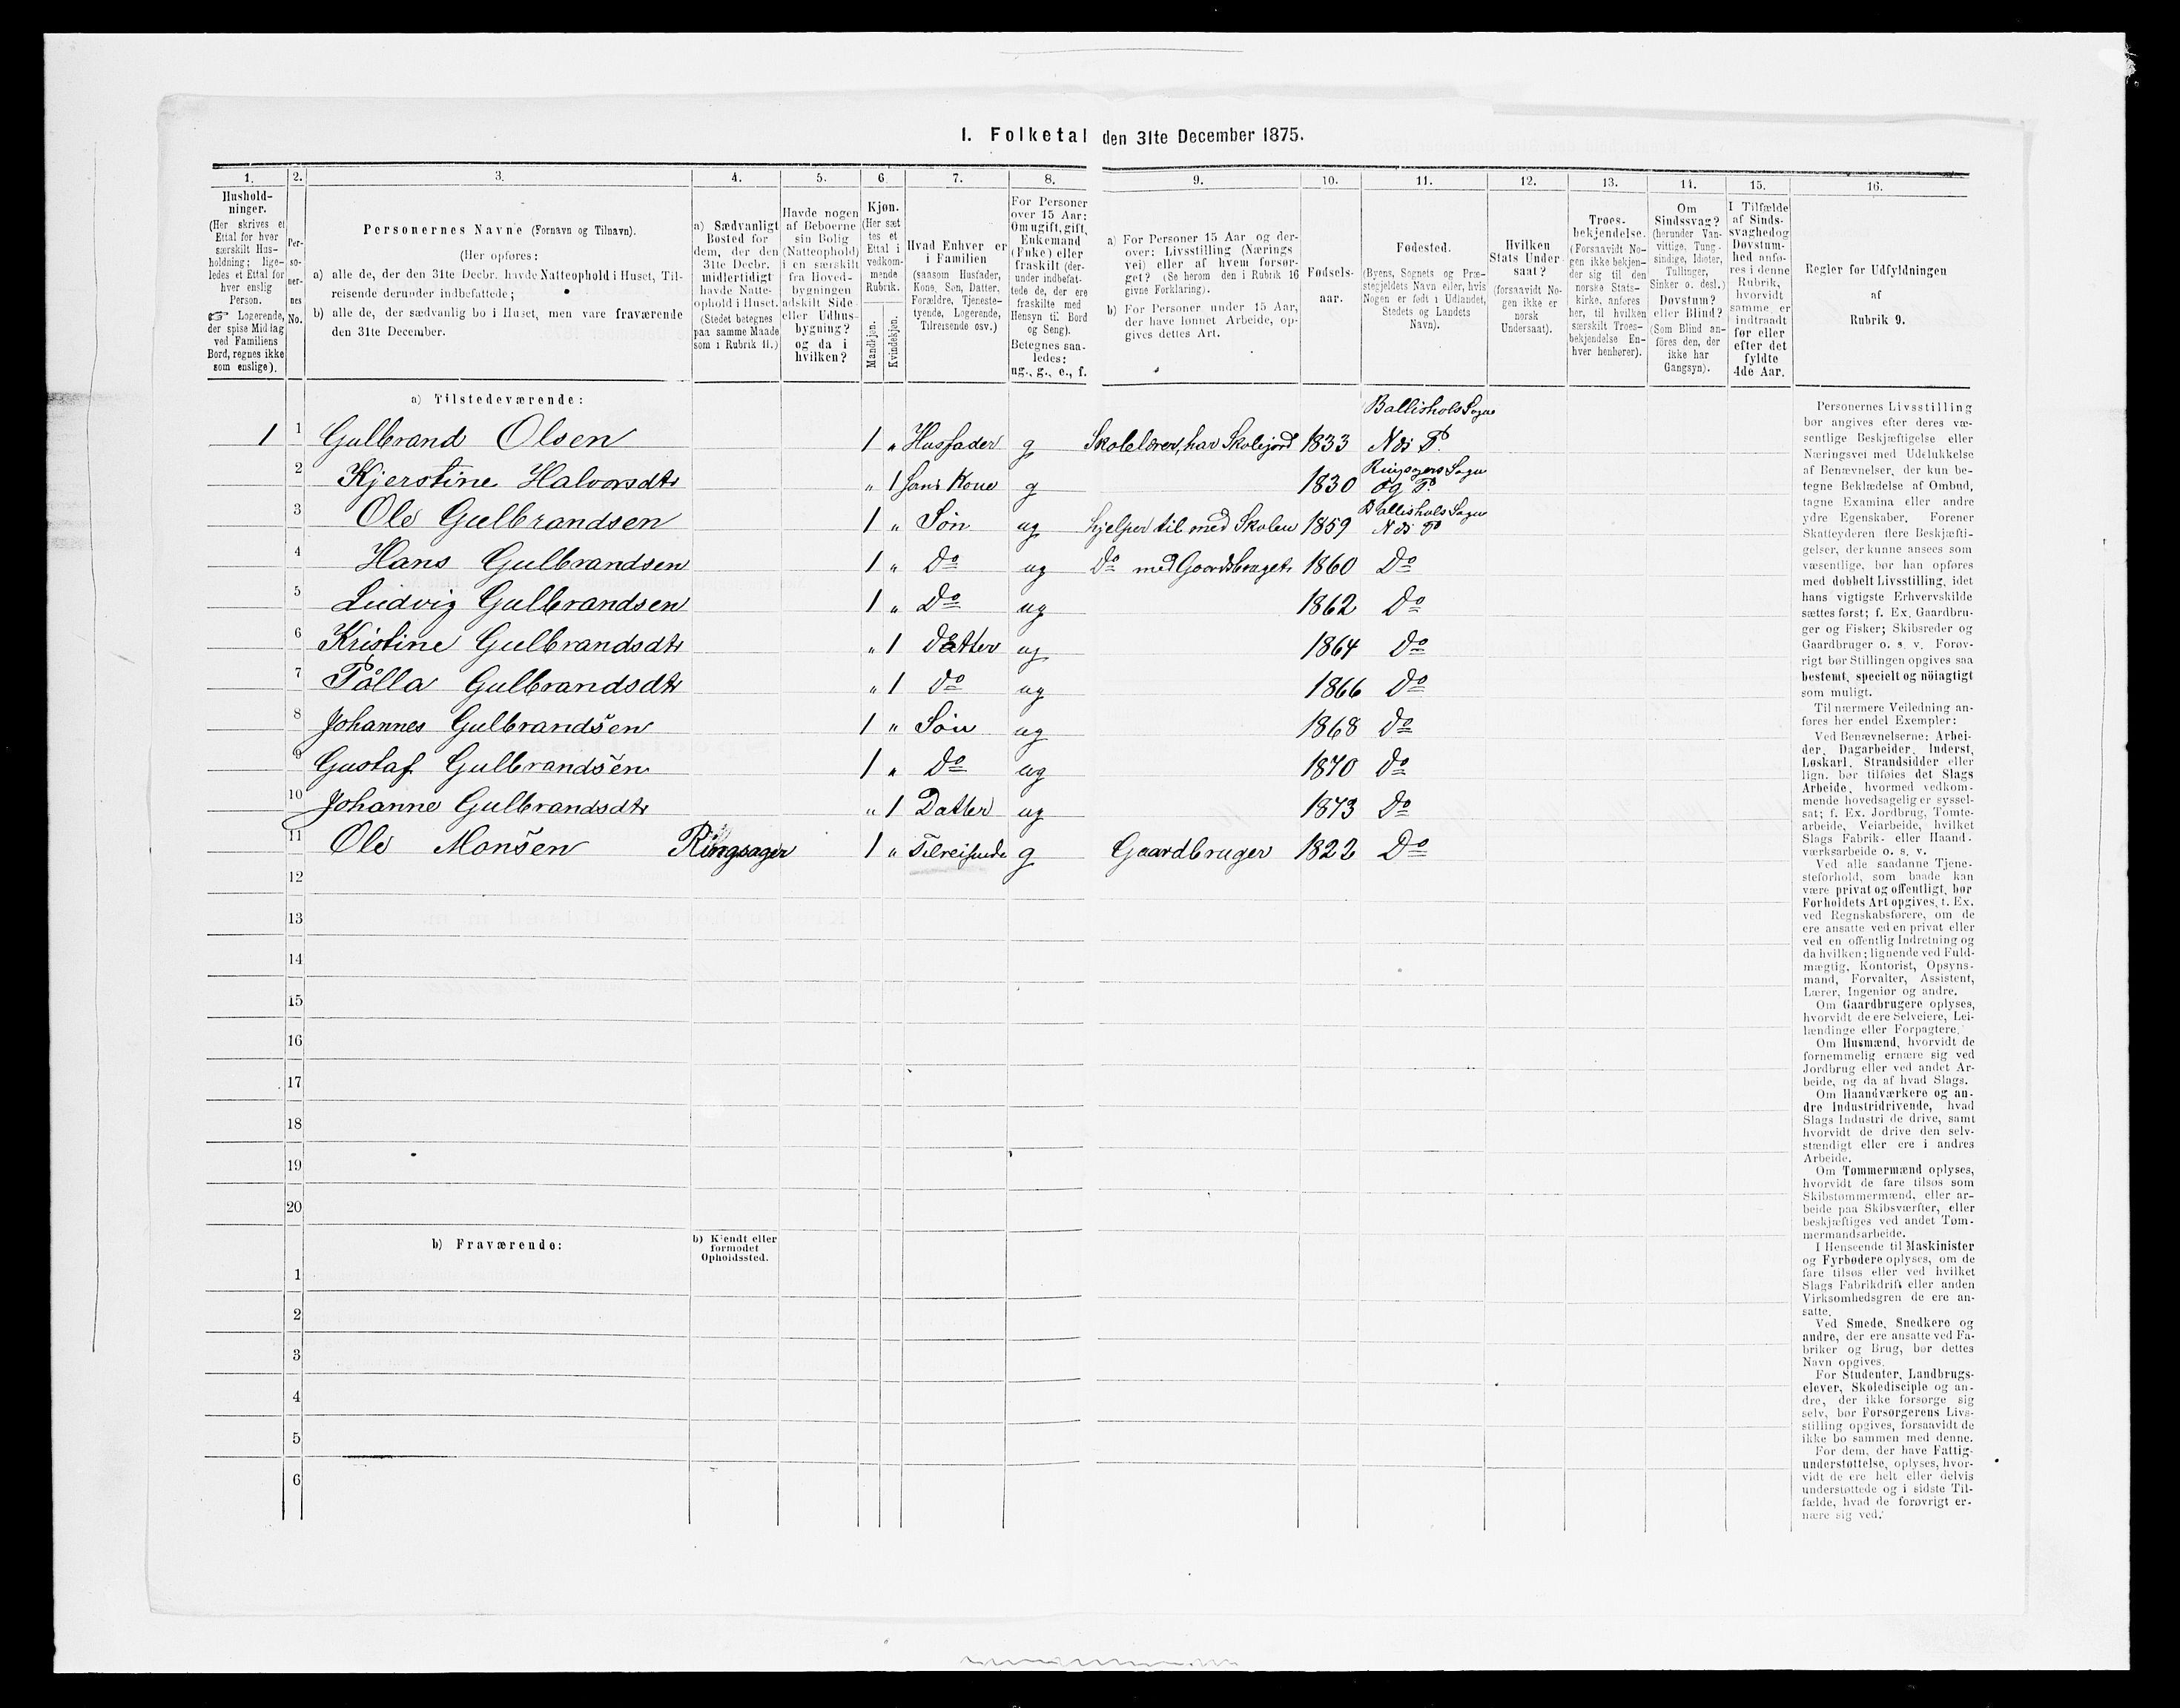 I. Folketal den 31te December 1875.
1. 2. 3. 4. 5. 6. 7. 8. 9. 10. 11. 12. 13. 14. 15. 16.
Hushold-
ninger.
(Her skrives et
Ettal for hver
særskilt Hus-
holdning; lige-
ledes et Ettal for
hver enslig
Person.
☞ Logerende,
der spise Middag
ved Familiens
Bord, regnes ikke
som enslige).
Per-
so-
ner-
nes
No.
Personernes Navne (Fornavn og Tilnavn).
(Her opføres:
a) alle de, der den 31te Decbr. havde Natteophold i Huset, Til-
reisende derunder indbefattede;
b) alle de, der sædvanlig bo i Huset, men vare fraværende
den 31te December.
a) Sædvanligt
Bosted for
dem, der den
31te Decbr.
midlertidigt
havde Natte-
ophold i Huset.
(Stedet betegnes
paa samme Maade
som i Rubrik 11.)
Havde nogen
af Beboerne
sin Bolig
(Natteophold)
i en særskilt
fra Hoved-
bygningen
adskilt Side-
eller Udhus-
bygning?
og da i
hvilken?
Kjøn.
(Her sæt
tes et
Ettal i
vedkom-
mende
Rubrik.
Mandkjøn.
Kvindekjøn.
Hvad Enhver er
i Familien
(saasom Husfader,
Kone, Søn, Datter,
Forældre, Tjeneste-
tyende, Logerende,
Tilreisende osv.)
For Personer
over 15 Aar:
Om ugift, gift,
Enkemand
(Enke) eller
fraskilt (der-
under indbefat-
tede de, der ere
fraskilte med
Hensyn til Bord
og Seng).
Betegnes saa-
ledes:
ug., g., e., f.
a) For Personer 15 Aar og der-
over: Livsstilling (Nærings
vei) eller af hvem forsør-
get? (Se herom den i Rubrik 16
givne Forklaring).
b) For Personer under 15 Aar,
der have lønnet Arbeide, op-
gives dettes Art.
Fødsels-
aar.
Fødested.
(Byens, Sognets og Præ-
stegjeldets Navn eller, hvis
Nogen er født i Udlandet,
Stedets og Landets
Navn).
Hvilken
Stats Under-
saat?
(forsaavidt No-
gen ikke er
norsk
Undersaat).
Troes-
bekjendelse.
(Forsaavidt No-
gen ikke bekjen-
der sig til den
norske Stats-
kirke, anføres
her, til hvilken
særskilt Troes-
bekjendelse En-
hver henhører).
Om
Sindssvag?
(herunder Van-
vittige, Tung-
sindige, Idioter,
Tullinger,
Sinker o. desl.)
Døvstum?
eller Blind?
(Som Blind an-
føres den, der
ikke har
Gangsyn).
I Tilfælde
af Sinds-
svaghed og
Døvstum-
hed anfø-
res i denne
Rubrik,
hvorvidt
samme er
indtraadt
før eller
efter det
fyldte
4de Aar.
Regler for Udfyldningen
af
Rubrik 9.
a) Tilstedeværende:
Ballishols Sogn
1 1 Gulbrand Olsen 1 " Husfader g Skolelærer, har Skolejord 1833 Næs P.
Ringsagers Sogn
2 Kjerstine Halvorsdtr " 1 hans Kone g 1830 og P.
Ballishols Sogn
3 Ole Gulbrandsen 1 " Søn ug hjelper til med Skolen 1859 Næs P
4 Hans Gulbrandsen 1 " Do ug Do med Gaardsbruget. 1860 Do
5 Ludvig Gulbrandsen 1 " Do ug 1862 Do
6 Kristine Gulbrandsdtr " 1 Datter ug 1864 Do
7 Pålla Gulbrandsdtr " 1 do ug 1866 Do
8 Johannes Gulbrandsen 1 " Søn ug 1868 do
9 Gustaf Gulbrandsen 1 " Do ug 1870 do
10 Johanne Gulbrandsdtr " 1 Datter ug 1873 Do
11 Ole Monsen Ringsager 1 " Tilreisende g Gaardbruger 1822 Do
12
13
14
15
16
17
18
19
20
b) Fraværende:
b) Kjendt eller
formodet
Opholdssted.
1
2
3
4
5
6
Personernes Livsstilling
bør angives efter deres væ-
sentlige Beskjæftigelse eller
Næringsvei med Udelukkelse
af Benævnelser, der kun be-
tegne Beklædelse af Ombud,
tagne Examina eller andre
ydre Egenskaber. Forener
Skatteyderen flere Beskjæfti-
gelser, der kunne ansees som
væsentlige, bør han opføres
med dobbelt Livsstilling, idet
hans vigtigste Erhvervskilde
sættes først; f. Ex. Gaardbru-
ger og Fisker; Skibsreder og
Gaardbruger o. s. v. Forøv-
rigt bør Stillingen opgives saa
bestemt, specielt og nöiagtigt
som muligt.
Til nærmere Veiledning an-
føres her endel Exempler:
Ved Benævnelserne: Arbei-
der, Dagarbeider, Inderst,
Løskarl, Strandsidder eller
lign. bør tilføies det Slags
Arbeide, hvormed vedkom-
mende hovedsagelig er syssel-
sat; f. Ex. Jordbrug, Tomte-
arbeide, Veiarbeide, hvilket
Slags Fabrik- eller Haand-
værksarbeide o. s. v.
Ved alle saadanne Tjene-
steforhold, som baade kan
være privat og offentligt, bør
Forholdets Art opgives, t. Ex.
ved Regnskabsførere, om de
ere ansatte ved en privat eller
ved en offentlig Indretning og
da hvilken; lignende ved Fuld-
mægtig, Kontorist, Opsyns-
mand, Forvalter, Assistent,
Lærer, Ingeniør og andre.
Om Gaardbrugere oplyses,
hvorvidt de ere Selveiere, Lei-
lændinge eller Forpagtere.
Om Husmænd, hvorvidt de
fornemmelig ernære sig ved
Jordbrug eller ved andet Ar-
beide, og da af hvad Slags.
Om Haandværkere og an-
dre Industridrivende, hvad
Slags Industri de drive, samt
hvorvidt de drive den selv-
stændigt eller ere i andres
Arbeide.
Om Tømmermænd oplyses,
hvorvidt de fare tilsøs som
Skibstømmermænd, eller ar-
beide paa Skibsværfter, eller
beskjæftiges ved andet Tøm-
mermandsarbeide.
I Henseende til Maskinister
og Fyrbødere oplyses, om de
fare tilsøs eller ved hvilket
Slags Fabrikdrift eller anden
Virksomhedsgren de ere an-
satte.
Ved Smede, Snedkere og
andre, der ere ansatte ved Fa-
briker og Brug, bør dettes
Navn opgives.
For Studenter, Landbrugs-
elever, Skoledisciple og an-
dre, der ikke forsørge sig
selv, bør Forsørgerens Livs-
stilling opgives, forsaavidt de
ikke bo sammen med denne.
For dem, der have Fattig-
understøttelse, oplyses, hvor-
vidt de ere helt eller delvis
understøttede og i sidste Til-
fælde, hvad de forøvrigt er-
nære sig ved.